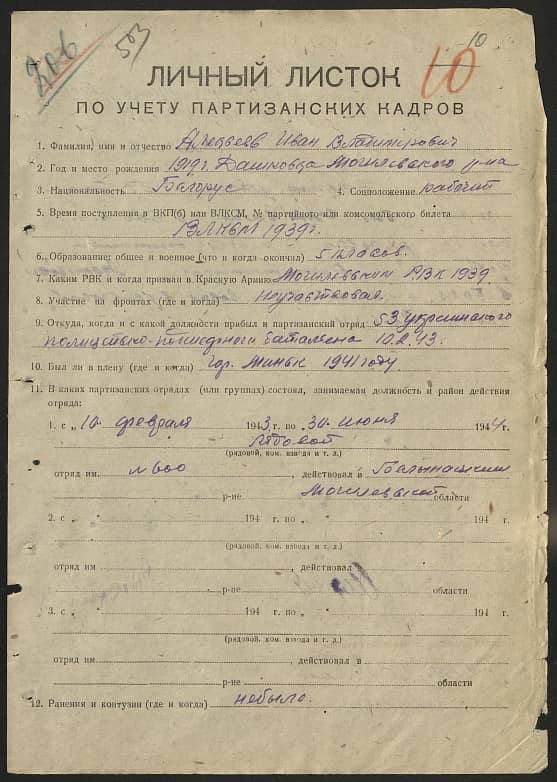 503
10
10
ЛИЧНЫЙ ЛИСТОК
ПО УЧЕТУ ПАРТИЗАНСКИХ КАДРОВ
1. Фамилия, имя и отчество Иван
2. Год и место рождения 1919г. Дашковца Могилевского р-на
3. Национальность Белорус 4. Соцположение рабочий
5. Время поступления в ВКП(б) или ВЛКСМ, № партийного или комсомольского билета
ВЛКСМ 1939г.
6. Образование: общее и военное (что и когда окончил) 5 класов.
7. Каким РВК и когда призван в Красную Армию Могилевским РВК 1939
8. Участие на фронтах (где и когда) неучаствовал.
9. Откуда, когда и с какой должности прибыл в партизанский отряд 53 украинского
полицейско- баталиена 10.2.43.
10. Был ли в плену (где и когда) гор. Минск 1941 году.
11. В каких партизанских отрядах (или группах) состоял, занимаемая должность и район действия
отряда:
1. с „ 10 февраля 1943 г. по 30 июня 1944г.
рядовой
(рядовой, ком. взвода и т. д.)
отряд им. №600 , действовал в
р-не Могилевской области
2. с „ 194 г. по „ 194 г.
(рядовой, ком. взвода и т. д.)
отряд им. , действовал в
р-не области
3. с „ 194 г. по „ 194 г.
(рядовой, ком. взвода и т. д.)
отряд им. , действовал в
р-не области
12. Ранения и контузии (где и когда) небыло.